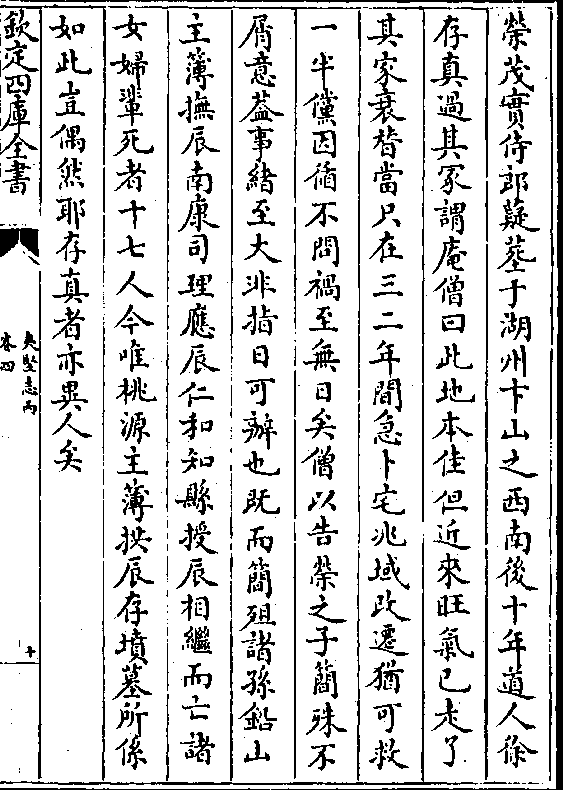 榮茂實侍郎薿葬于湖州卞山之西南後十年道人徐
存真過其冢謂庵僧曰此地本佳但近來旺氣已走了
其家衰替當只在三二年間急卜宅兆域改遷猶可救
一半儻因循不問禍至無日矣僧以告榮之子簡殊不
屑意葢事緒至大非指日可辦也既而簡殂諸孫鉛山
主簿撫辰南康司理應辰仁和知縣授辰相繼而亡諸
女婦輩死者十七人今唯桃源主薄拱辰存墳墓所係
如此豈偶然耶存真者亦異人矣
欽定四庫全書
夷堅志丙
卷四
十